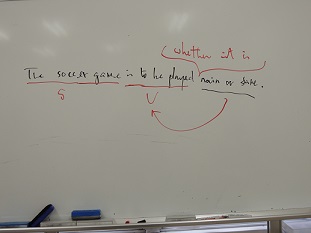 whether it is
The soccer game is to be played rain or
S V